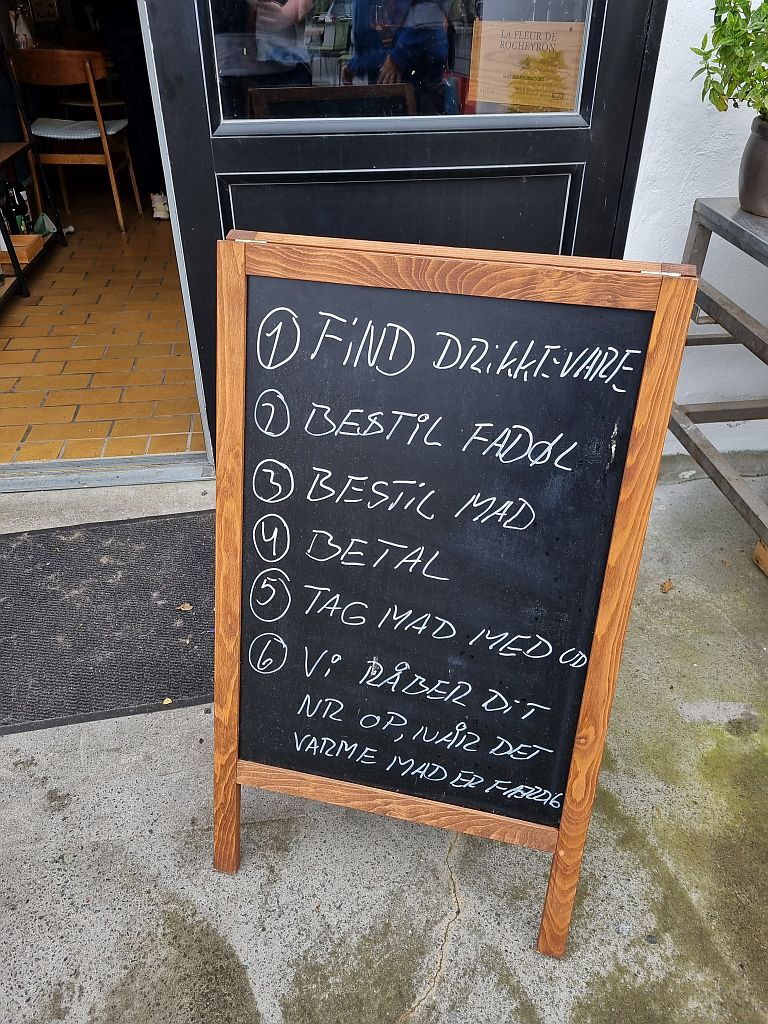 LA FLEUR DE
ROCHEYRON
1 FIND DRIKKEVARE
2 BESTIL FADØL
3 BESTIL MAD
4 BETAL
5 TAG MAD MED UD
6 VI RÅBER DIT
NR OP, NÅR DET
VARME MAD ER FÆRDIG